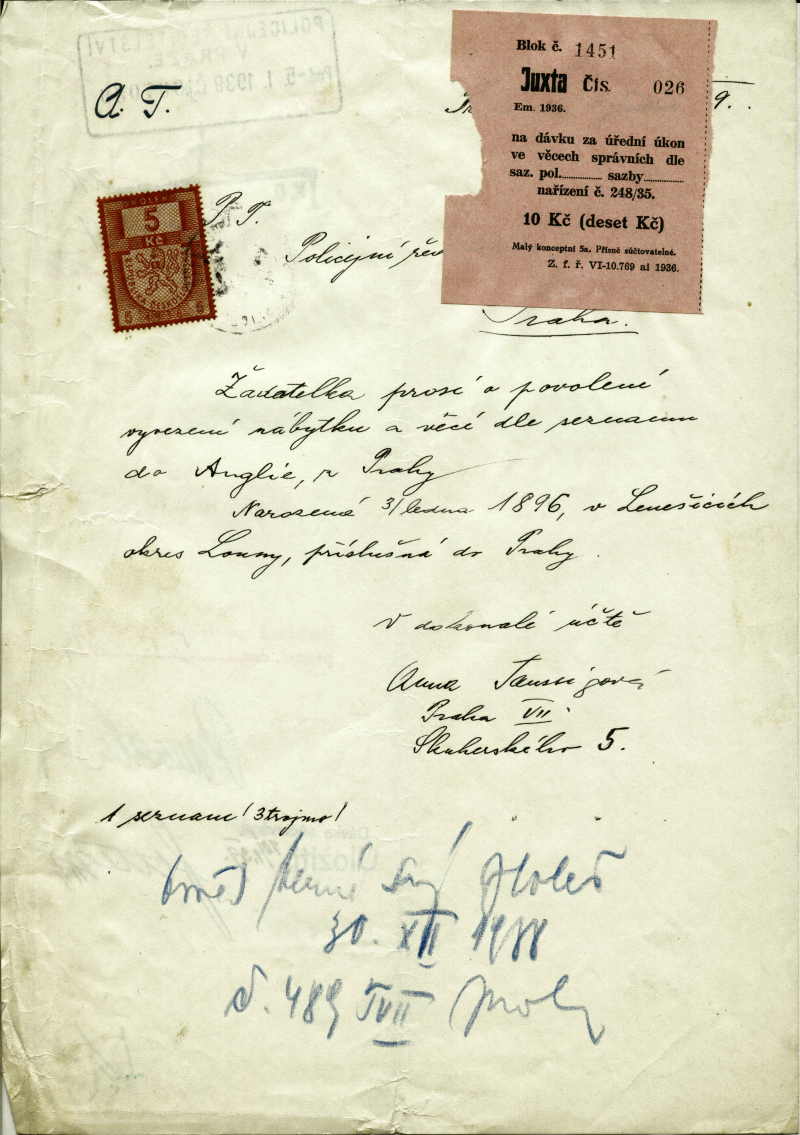 Blok č. 1451
Juxta Čís. 026
Em. 1936.
na dávku za úřední úkon
ve věcech správních dle
saz. pol. sazby
nařízení č. 248/35.
10 Kč (deset Kč)
Malý konceptní 5a. Přísně súčtovatelné.
Z. f. ř. VI-10.769 ai 1936.
POLICEJNÍ ŘEDITELSTVÍ
V PRAZE.
A. T.
9.
KOLEK
5
Kč
P. T.
Policejní ře
Praha.
Žadatelka prosí o povolení
vyvezení nábytku a věcí dle seznamu
do Anglie, z Prahy
Narozená 3/ ledna 1896, v Lenešicích
okres Louny, příslušná do Prahy.
V dokonalé úctě
Anna Taussigová
Praha VII
Skuherského 5.
1 seznam! 3trojmo!
30. XII 1988
č. 489 VII